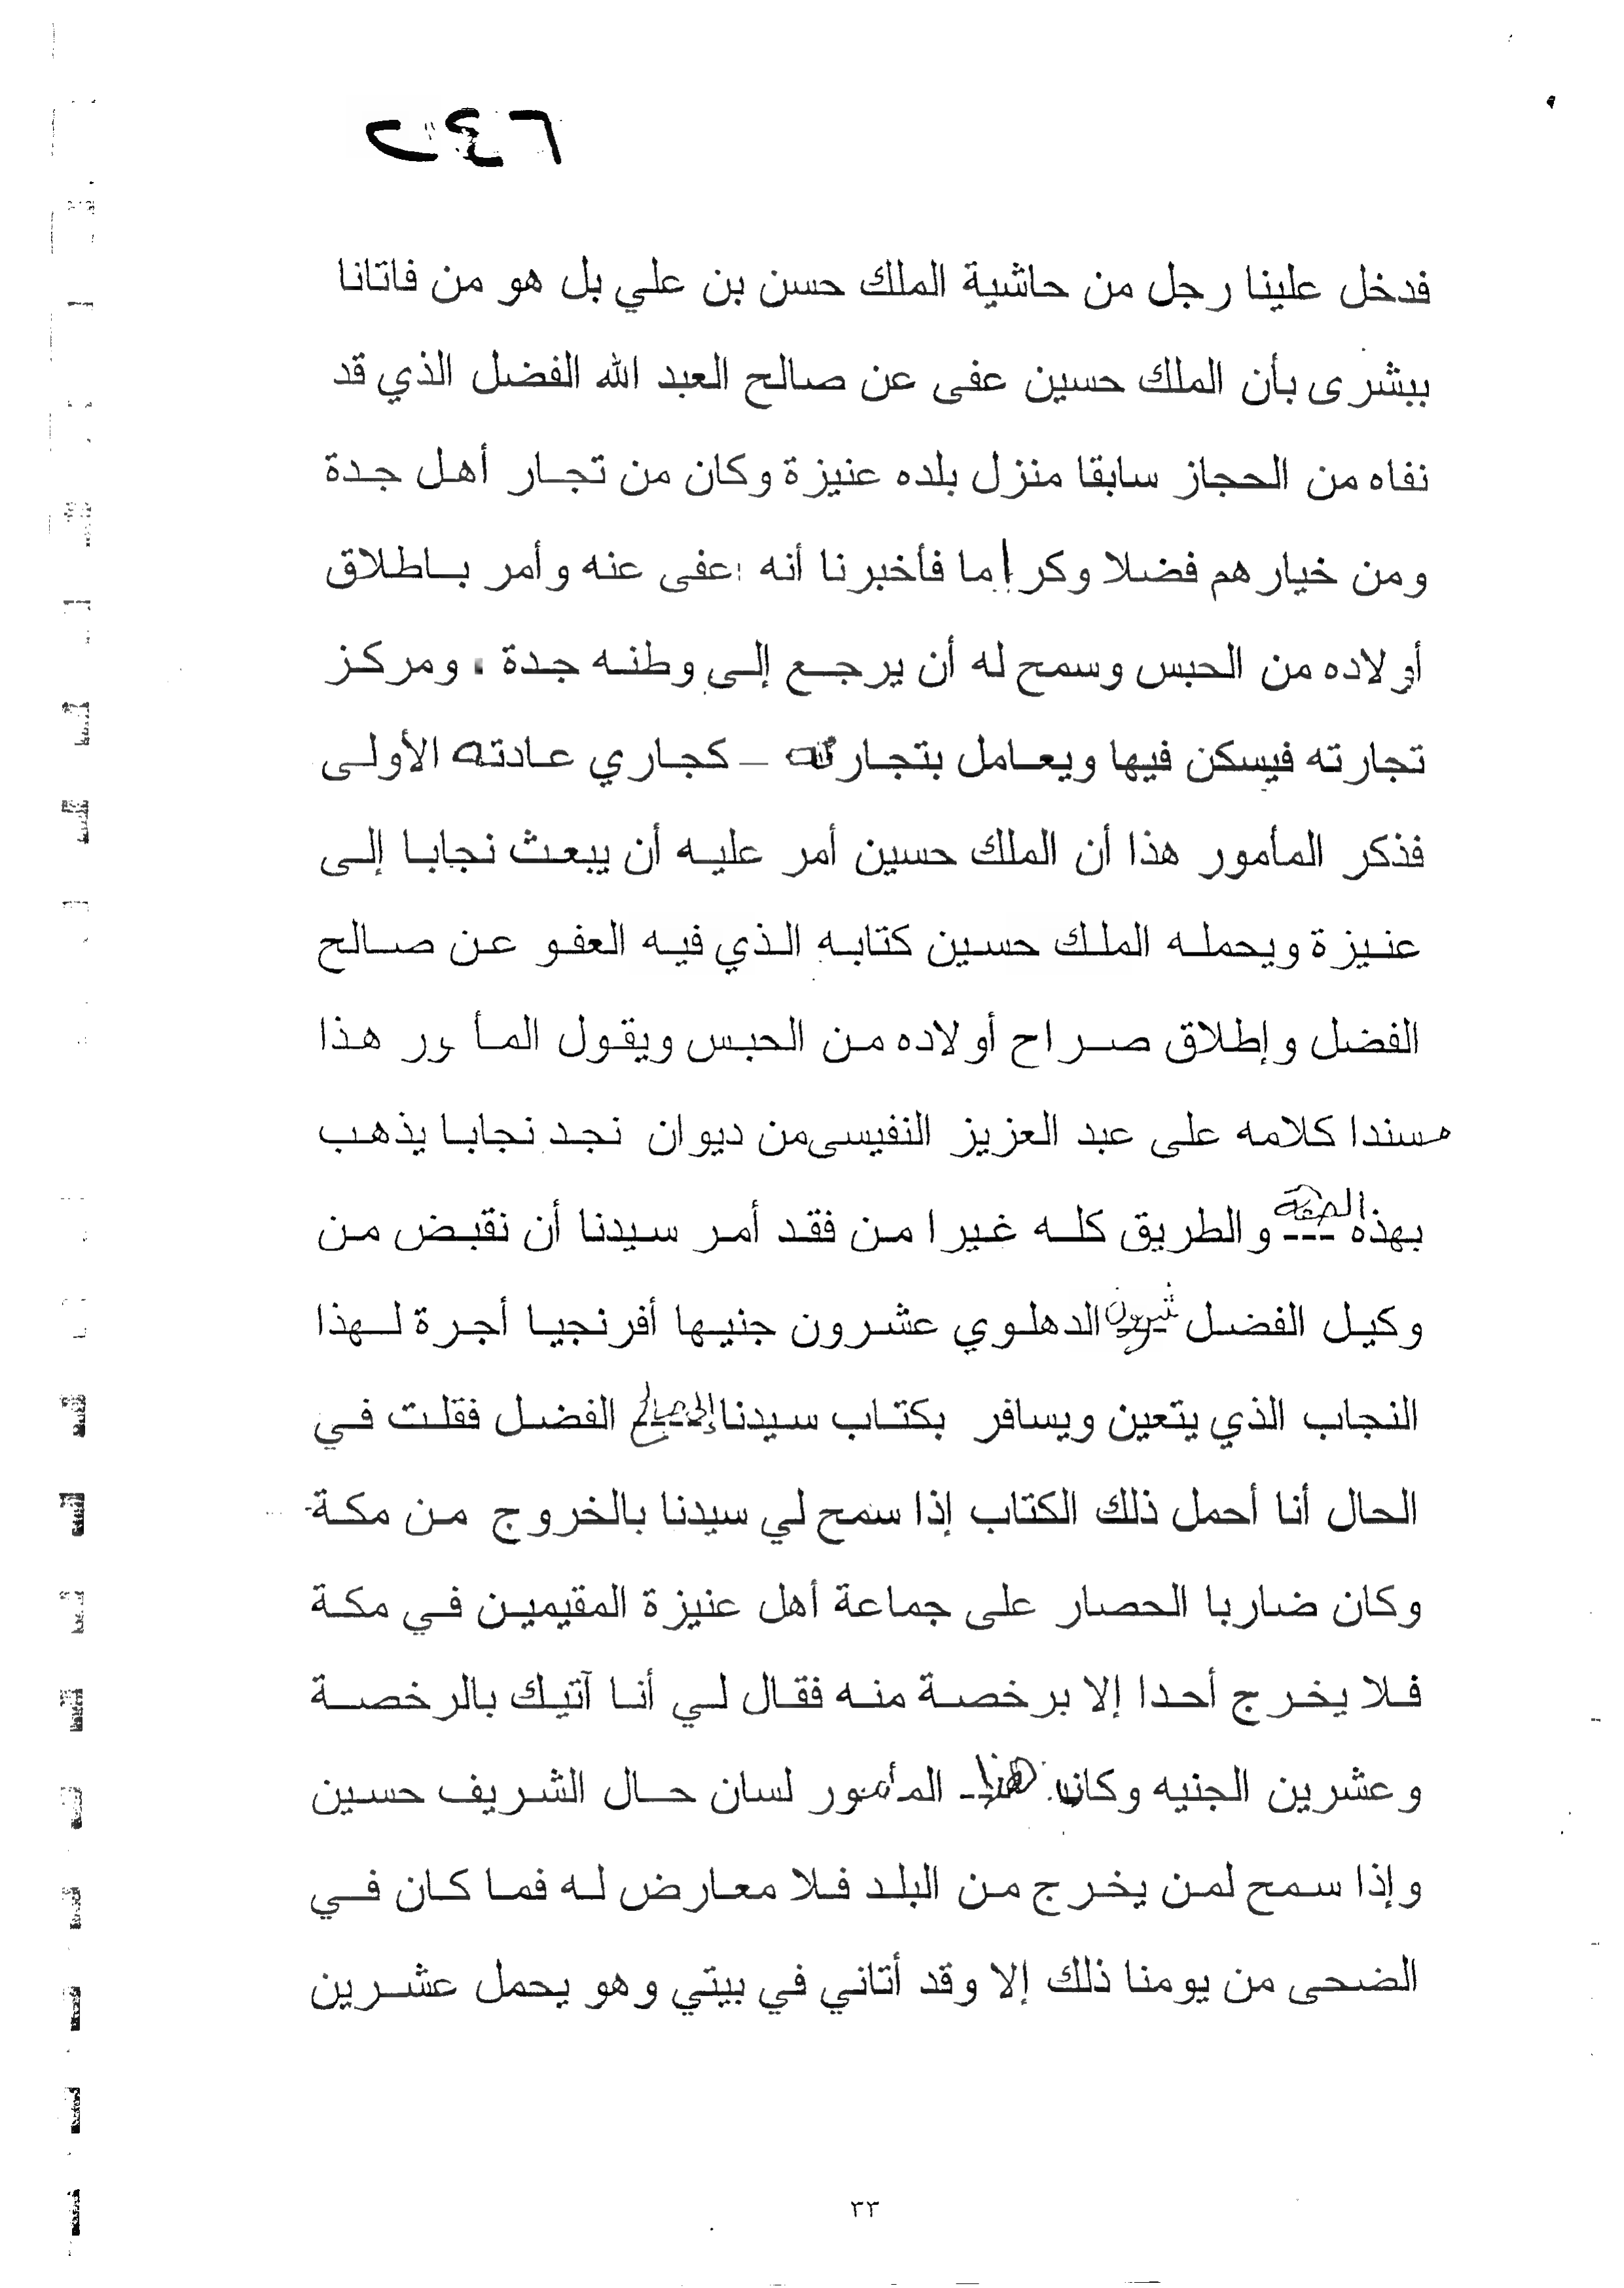 فدخل علينا رجل من حاشية الملك حسن بن علي بل هو من فاتانا
ببشرى بأن الملك حسين عفى عن صالح العبد الله الفضل الذي قد
نفاه من الحجاز سابقا منزل بلده عنيزة وكان من تجار أهل جدة
ومن خيارهم فضلا وكراما فأخبرنا أنه عفى عنه وأمر باطلاق
أولاده من الحبس وسمح له أن يرجع إلى وطنه جدة . ومركز
تجارته فيسكن فيها ويعامل بتجارته – كجاري عادته الأولى
فذكر المأمور هذا أن الملك حسين أمر عليه أن يبعث نجابا إلى
عنيزة ويحمله الملك حسين كتابه الذي فيه العفو عن صالح
الفضل وإطلاق صراح أولاده من الحبس ويقول المأمور هذا
مسندا كلامه على عبد العزيز النفيسي من ديوان نجد نجابا يذهب
بهذه الصفة والطريق كله غيرا من فقد أمر سيدنا أن نقبض من
وكيل الفضل الدهلوي عشرون جنيها أفرنجيا أجرة لهذا
النجاب الذي يتعين ويسافر بكتاب سيدنا إلى صالح الفضل فقلت في
الحال أنا أحمل ذلك الكتاب إذا سمح لي سيدنا بالخروج من مكة
وكان ضاربا الحصار على جماعة أهل عنيزة المقيمين في مكة
فلا يخرج أحدا إلا برخصة منه فقال لي أنا آتيك بالرخصة
وعشرين الجنيه وكان هذا المأمور لسان حال الشريف حسين
وإذا سمح لمن يخرج من البلد فلا معارض له فما كان في
الضحى من يومنا ذلك إلا وقد أتاني في بيتي وهو يحمل عشرين
٣٣